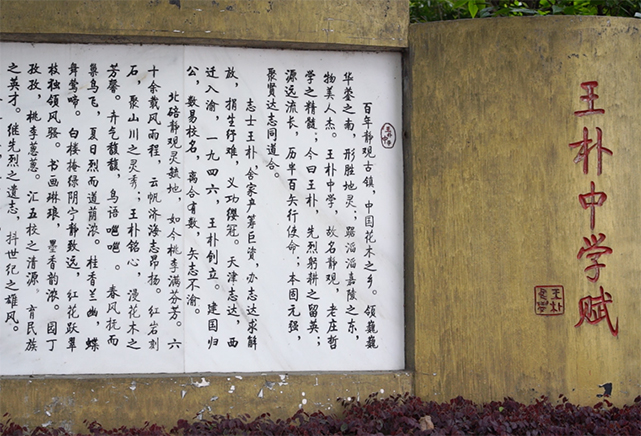 王朴中学赋
王朴
百年静观古镇,中国花木之乡。领巍巍
华蓥之南,形胜地灵;踞滔滔嘉陵之东,
物美人杰。王朴中学,故名静观,老庄哲
学之精髓;今曰王朴,先烈躬耕之留英;
源远流长,历半百矢行使命;本固元强,
聚贤达志同道合。
志士王朴,舍家产筹巨资,亦志达求解
放,捐生纾难,义功缨冠。天津志达,西
迁入渝,一九四六,王朴创立。建国归
公,数易校名,离合有数,矢志不渝。
北碚静观灵毓地 如今桃李满芬芳。六
十余载风雨程,云帆济海志昂扬。红岩刻
石,聚山川之灵秀;王朴铭心,漫花木之
芳馨。卉气馥馥,鸟语。春风抚而
巢鸟飞,夏日烈而道荫浓。桂香兰幽,蝶
舞莺啼。白楼掩绿阴宁静致远,红花跃翠
枝独领风骚。书画琳琅,墨香韵浓。园丁
孜孜,桃李葱葱。汇五校之清源,育民族
之英才。继先烈之遗志,抖世纪之雄风。